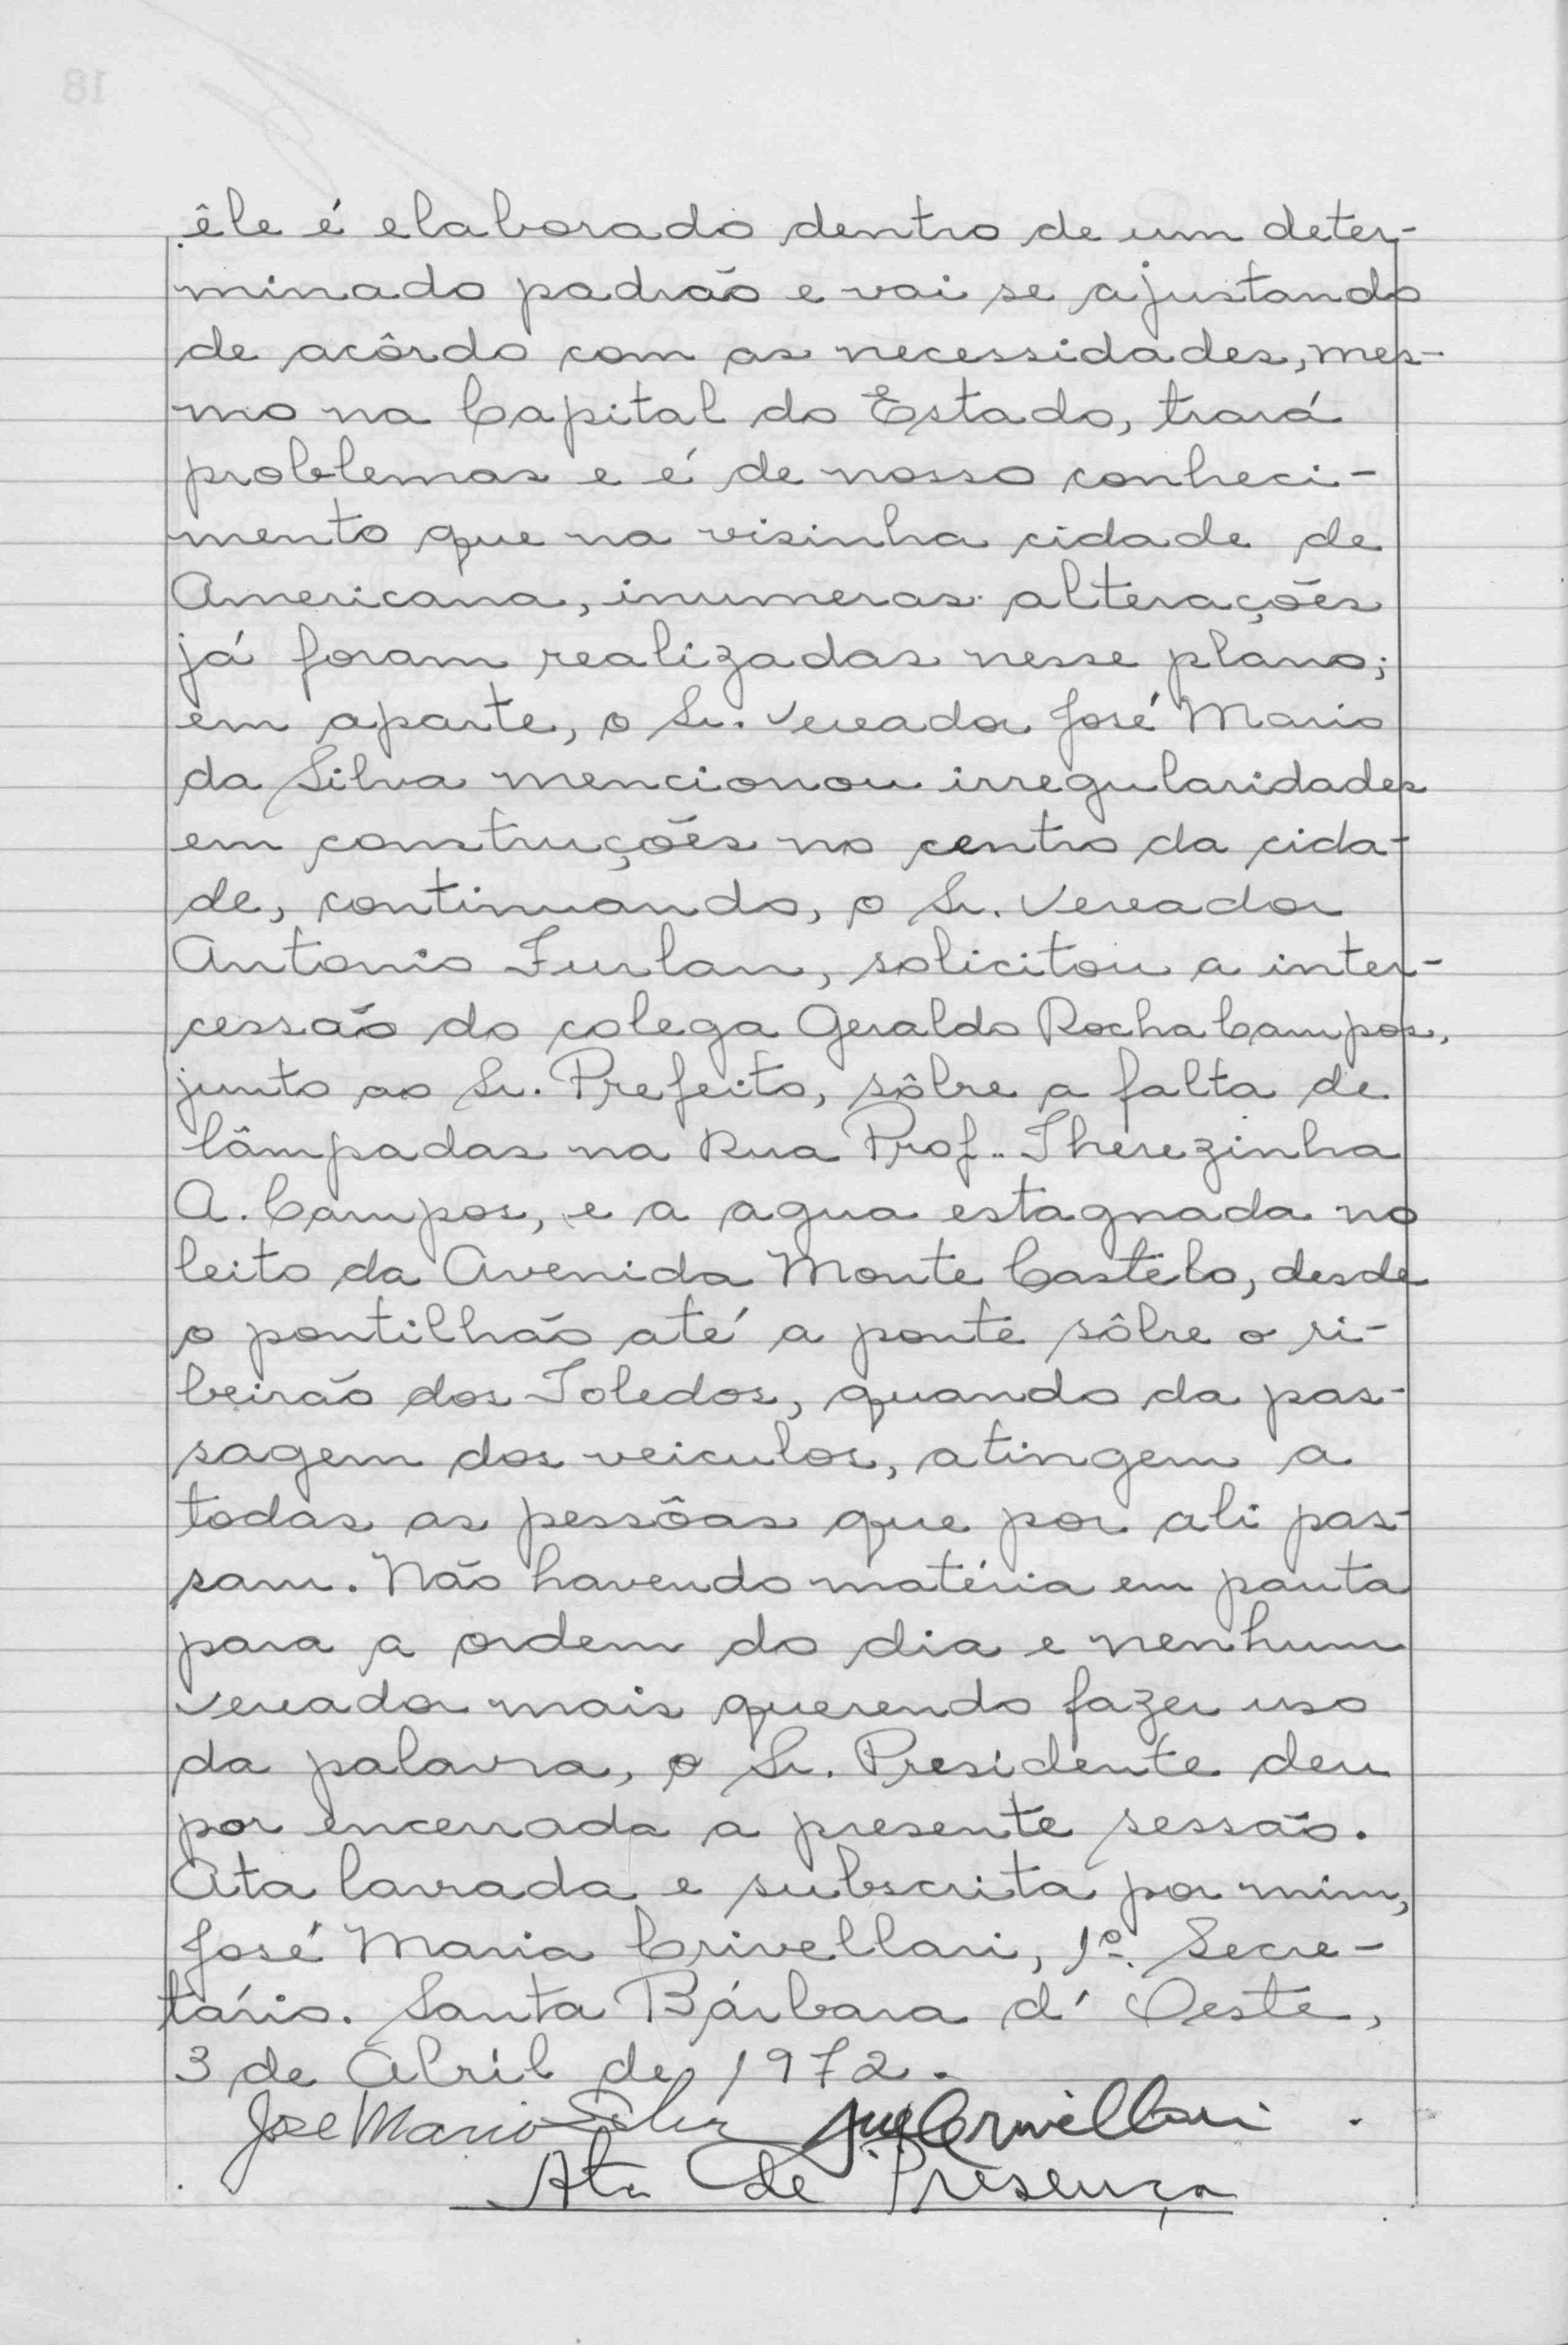 êle é elaborado dentro de um deter-
minado padrão e vai se ajustando
de acôrdo com as necessidades, mes-
mo na Capital do Estado, trará
problemas e é de nosso conheci-
mento que na visinha cidade de
Americana, inumeras alterações
já foram realizadas nesse plano;
em aparte, o Sr. Vereador José Maria
da Silva mencionou irregularidades
em construções no centro da cida-
de, continuando, o Sr. Vereador
Antonio Furlan, solicitou a inter-
cessão do colega Geraldo Rocha Campos,
junto ao Sr. Prefeito, sôbre a falta de
lâmpadas na Rua Prof.. Therezinha
A. Campos, e a agua estagnada no
leito da Avenida Monte Castelo, desde
o pontilhão até a ponte sôbre o ri-
beirão dos Toledos, quando da pas-
sagem dos veiculos, atingem a
todas as pessôas que por ali pas-
sam. Não havendo matéria em pauta
para a ordem do dia e nenhum
vereador mais querendo fazer uso
da palavra, o Sr. Presidente deu
por encerrada a presente sessão.
Ata lavrada e subscrita por mim,
José Maria Crivellari, 1º. Secre-
tário. Santa Bárbara d' Oeste,
3 de Abril de 1972.
José Mario Silva Crivellari
Ata de Presença
18